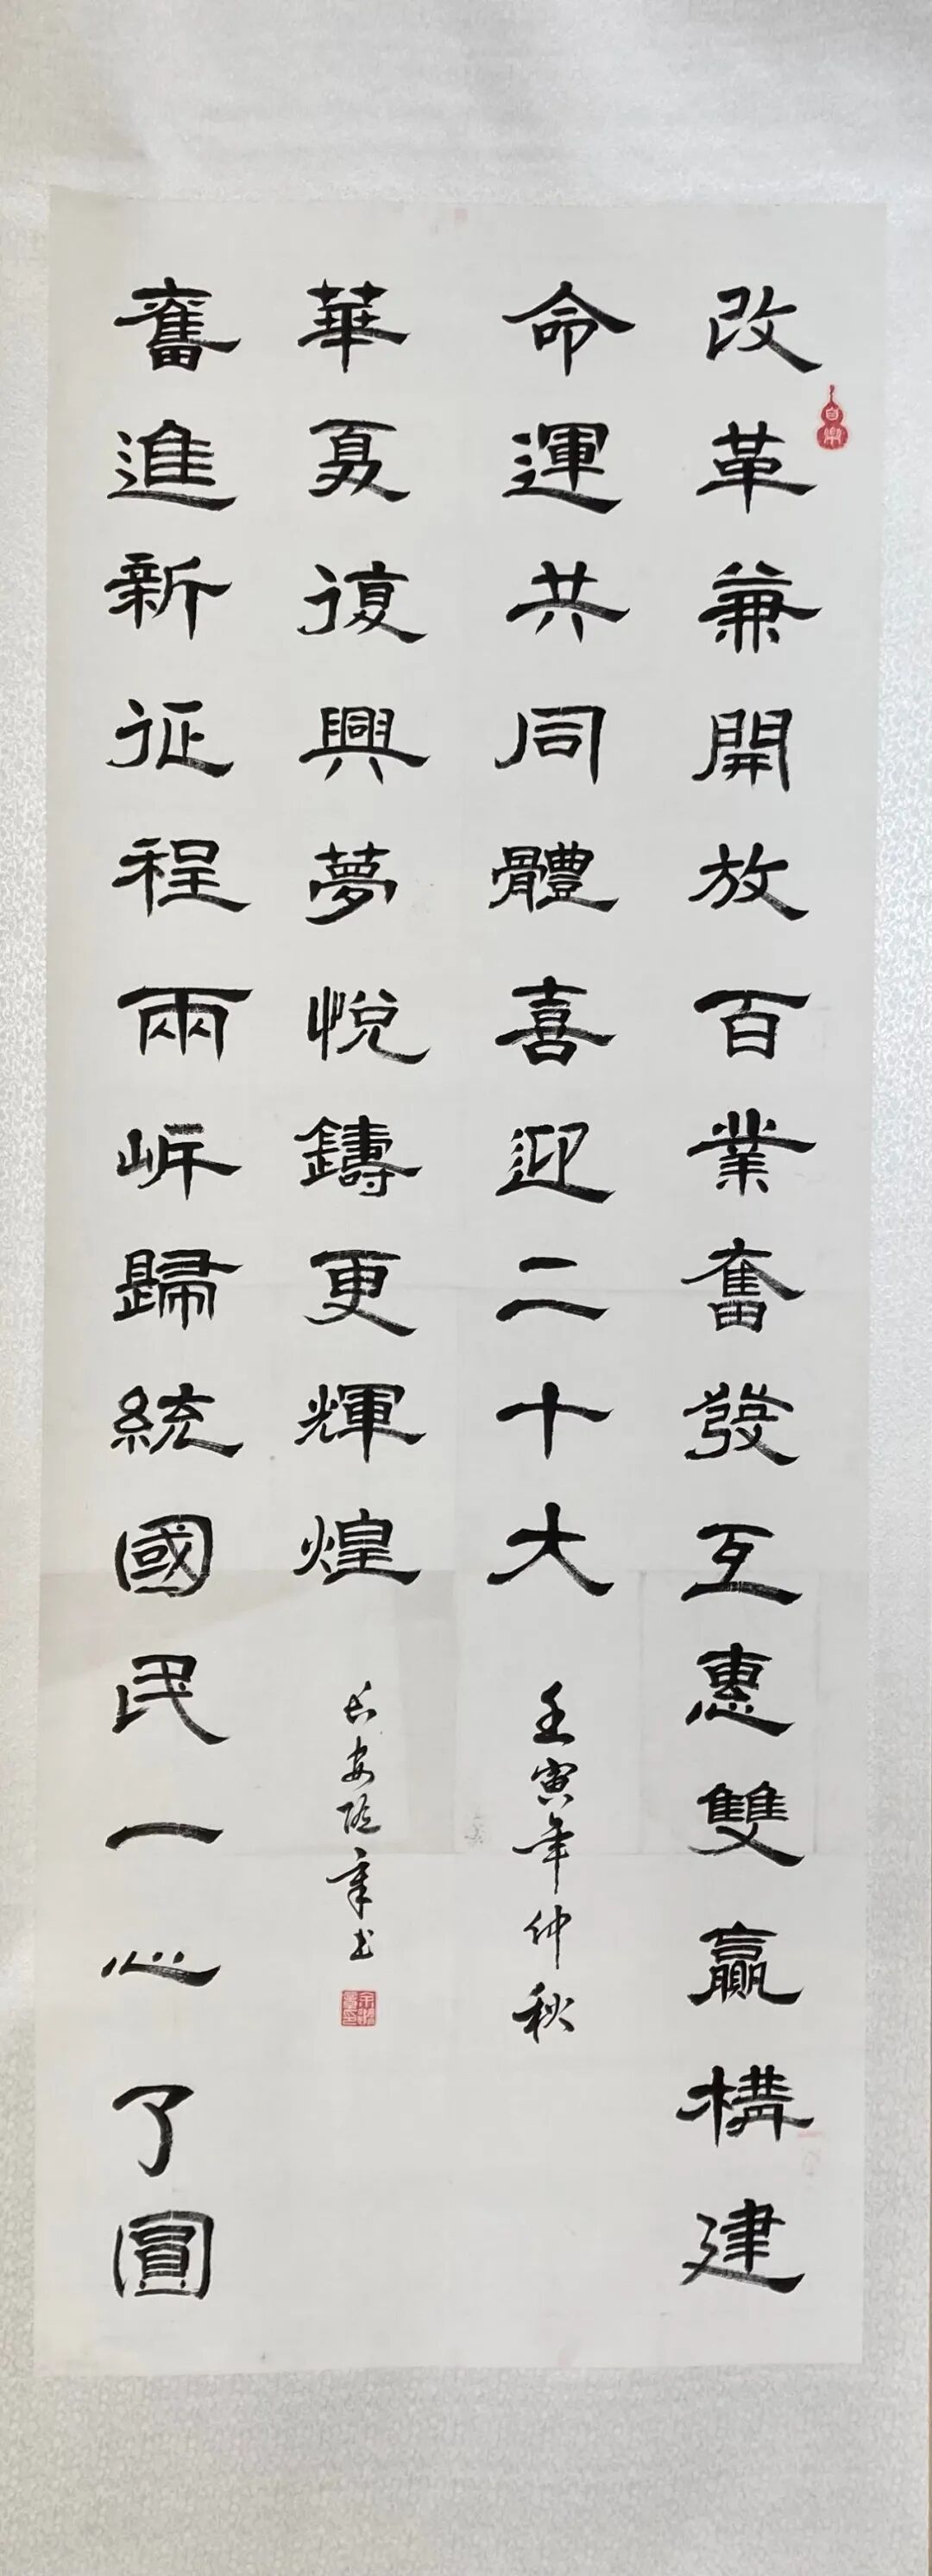 改革兼開放百業奮發互惠雙贏構建
命運共同體喜迎二十大
壬寅年仲秋
奮進新征程兩岸歸統國民一心了圓
華夏復興夢悅鑄更輝煌
长安章书